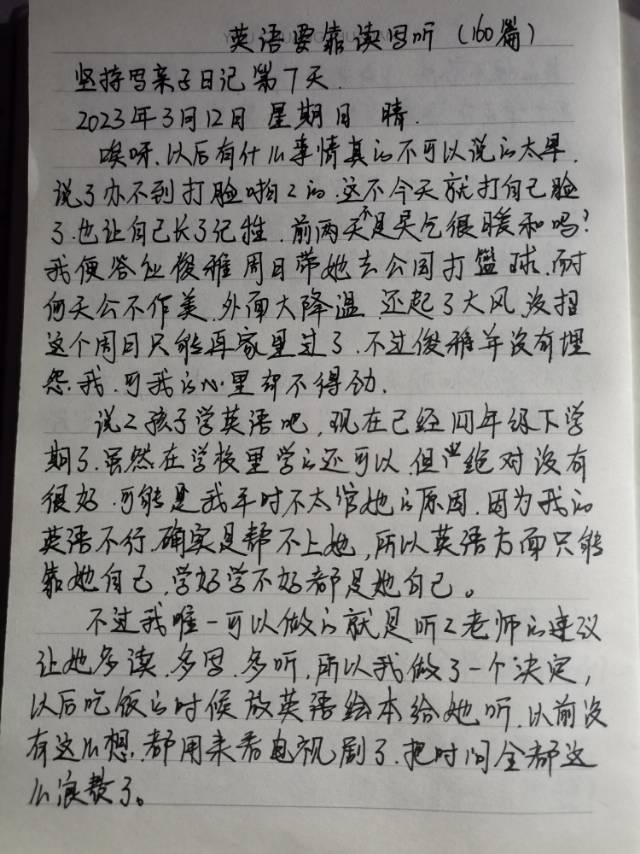 英语要靠读写听（160篇）
坚持写亲子日记第7天.
2023年3月12日 星期日 晴.
唉呀.以后有什么事情真的不可以说的太早.
说了办不到打脸啪2的.这不今天就打自己脸
了.也让自己长了记性.前两天不是天气很暖和吗?
我便答应俊雅周日带她去公园打篮球.耐
何天公不作美.外面大降温 还起了大风.没招
这个周日只能再家里过了.不过俊雅并没有埋
怨我.可我的心里却不得劲.
说2孩子学英语吧,现在已经四年级下学
期了.虽然在学校里学的还可以.但绝对没有
很好.可能是我平时不太管她的原因.因为我的
英语不行.确实是帮不上她,所以英语方面只能
靠她自己.学好学不好都是她自己。
不过我唯一可以做的就是听2老师的建议
让她多读.多写.多听.所以我做了一个决定,
以后吃饭的时候放英语绘本给她听.以前没
有这么想.都用来看电视剧了.把时间全都这
么浪费了。